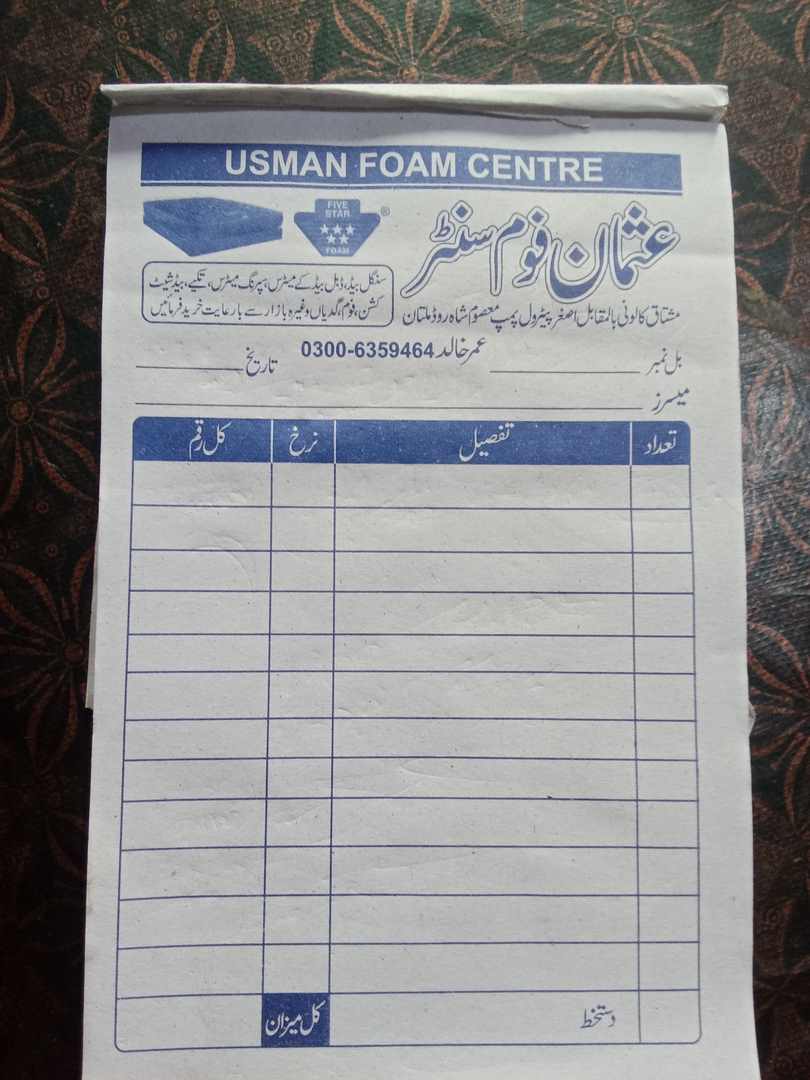 USMAN FOAM CENTRE
FIVE
STAR
FOAM
®
عثمان فوم سنٹر
سنگل بیڈ، ڈبل بیڈ کے میٹرس، سپرنگ میٹرس، تکیے، بیڈ شیٹ
کشن، فوم، گدیاں وغیرہ بازار سے بارعایت خرید فرمائیں
مشتاق کالونی بالمقابل اصغر پیٹرول پمپ معصوم شاہ روڈ ملتان
بل نمبر عمر خالد 0300-6359464 تاریخ
میسرز
تعداد تفصیل نرخ کل رقم
دستخط کل میزان